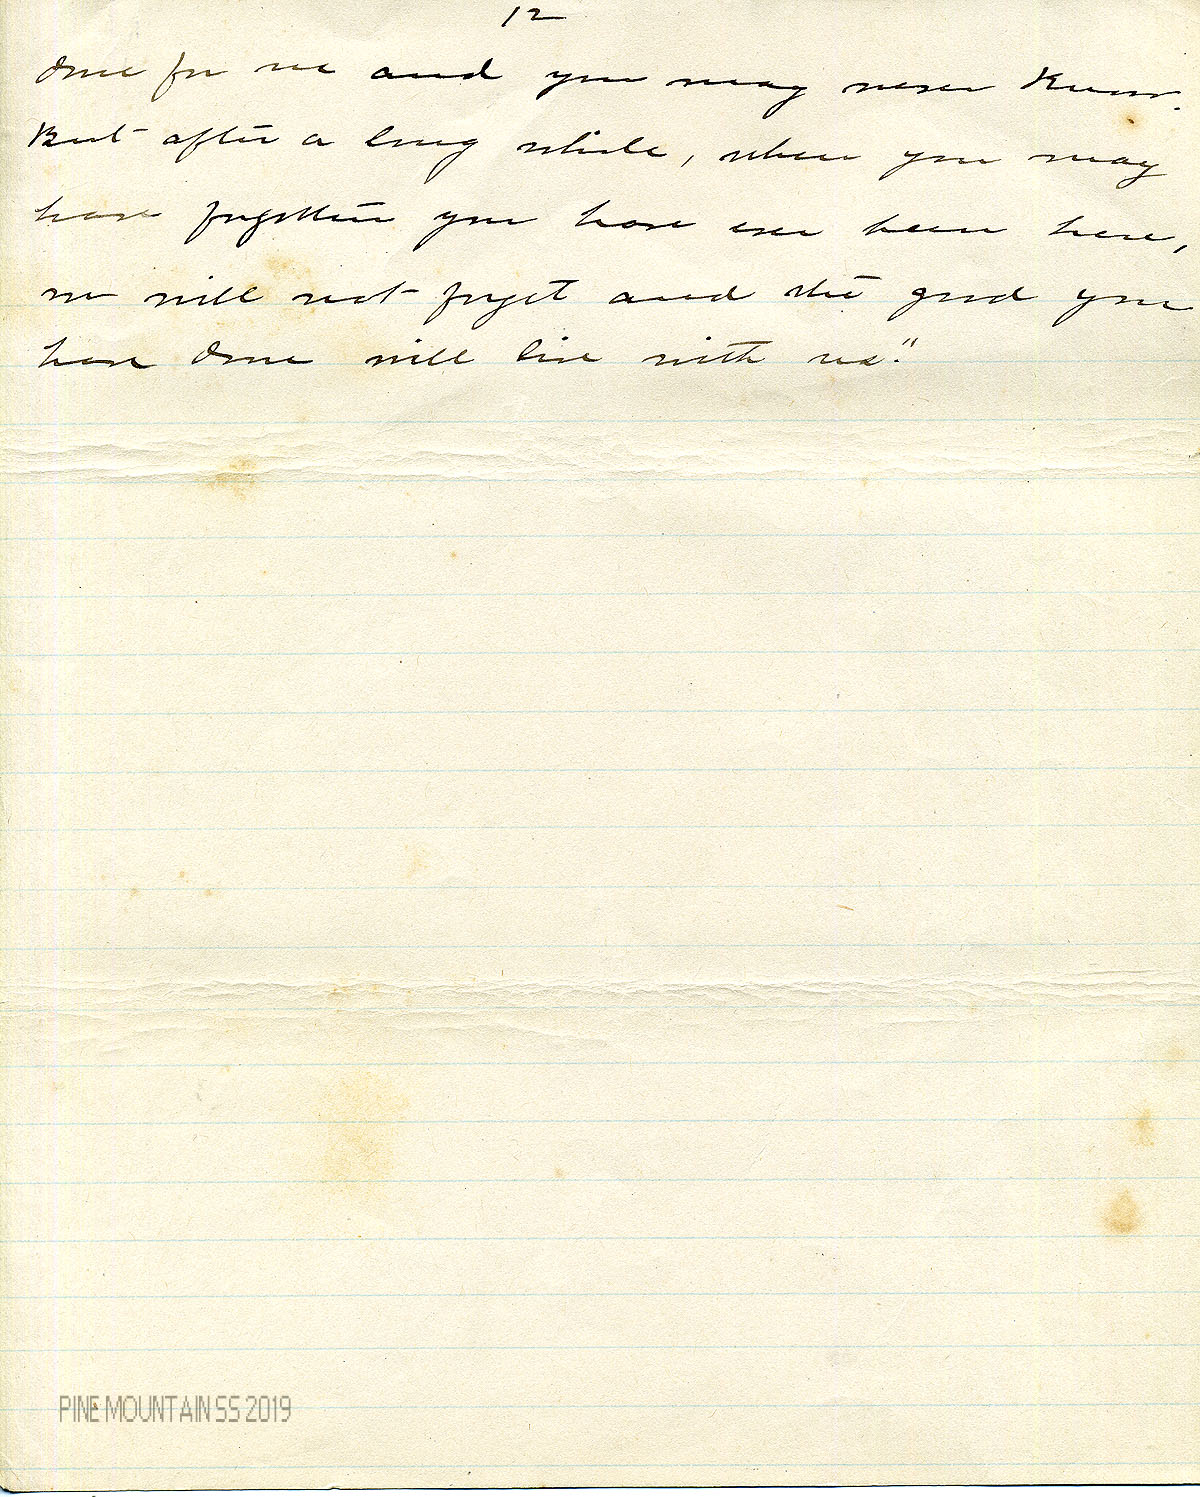 12
done for us and you may never know.
But after a long while, when you may
have forgotten you have ever been here,
we will not forget and the good you
have done will live with us."
PINE MOUNTAIN SS 2019